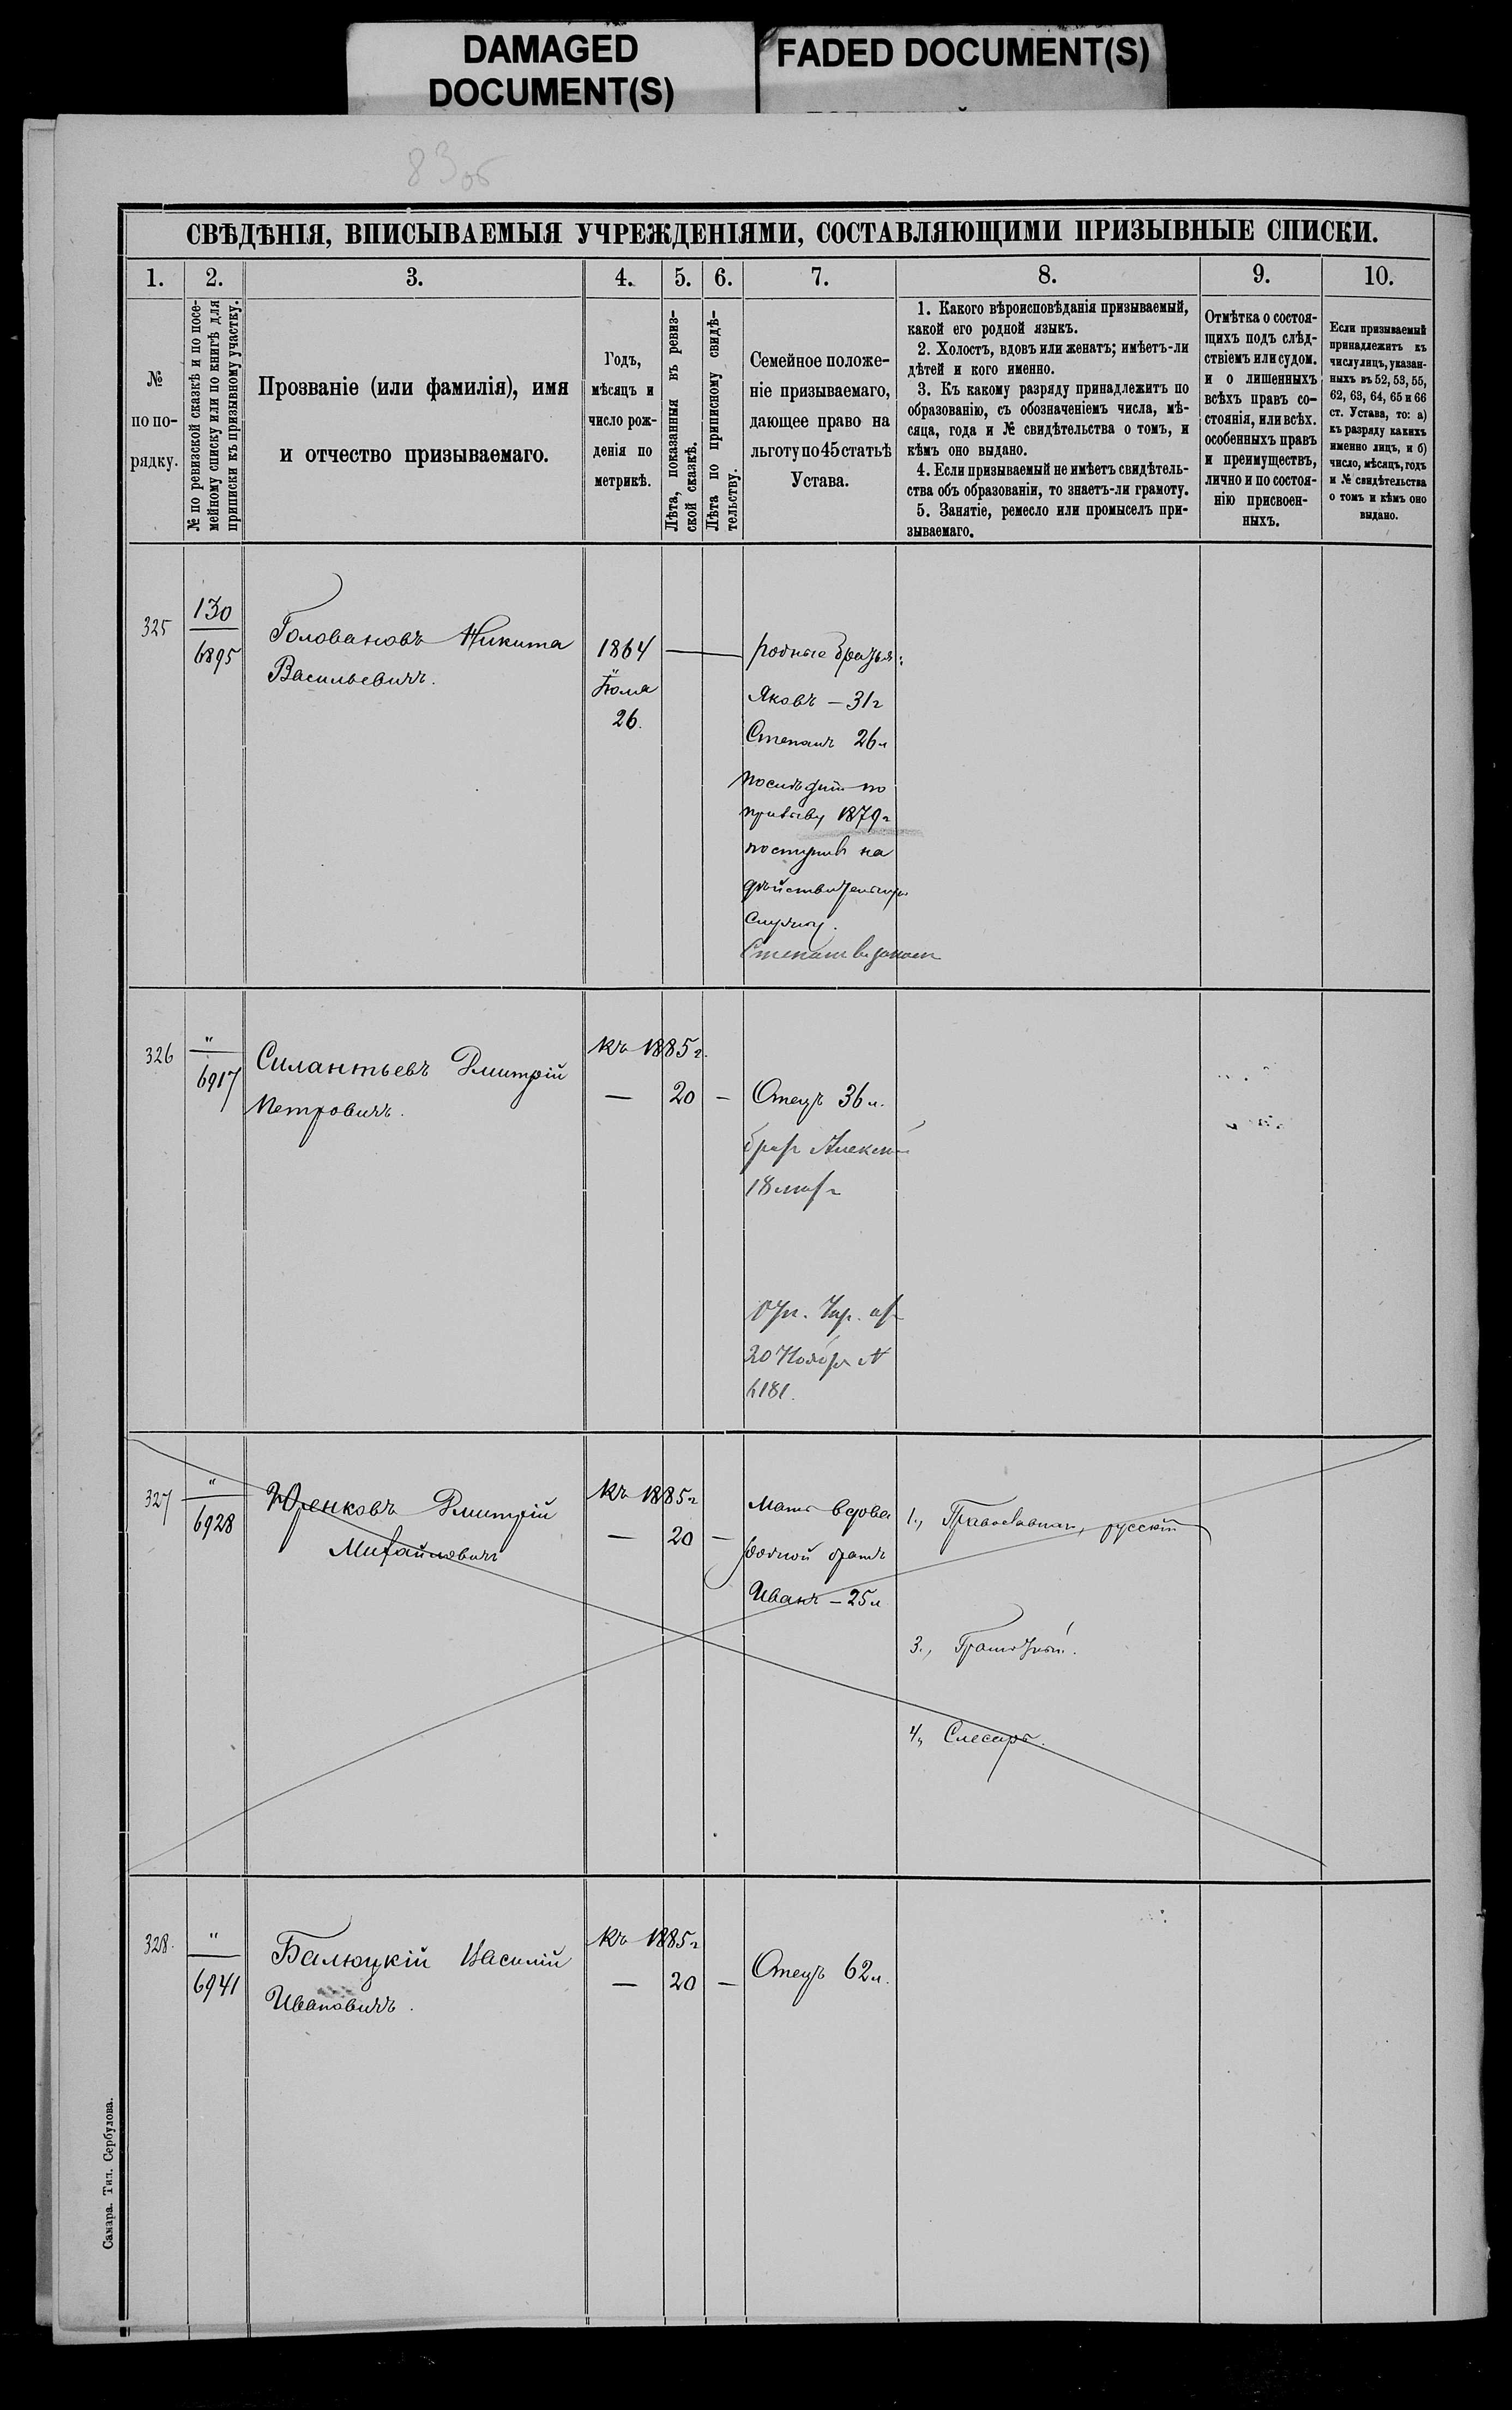 DAMAGED
DOCUMENT(S)
FADED DOCUMENT(S)
83об
СВѢДѢНІЯ, ВПИСЫВАЕМЫЯ УЧРЕЖДЕНІЯМИ, СОСТАВЛЯЮЩИМИ ПРИЗЫВНЫЕ СПИСКИ.
1. 2. 3. 4. 5. 6. 7. 8. 9. 10.
№
по по-
рядку.
№ по ревизской сказкѣ и по посе-
мейному списку или по книгѣ для
приписки къ призывному участку.
Прозваніе (или фамилія), имя
и отчество призываемаго.
Годъ,
мѣсяцъ и
число рож-
денія по
метрикѣ.
Лѣта, показанныя въ ревиз-
ской сказкѣ.
Лѣта по приписному свидѣ-
тельству.
Семейное положе-
ніе призываемаго,
дающее право на
льготу по 45 статьѣ
Устава.
1. Какого вѣроисповѣданія призываемый,
какой его родной языкъ.
2. Холостъ, вдовъ или женатъ; имѣетъ-ли
дѣтей и кого именно.
3. Къ какому разряду принадлежитъ по
образованію, съ обозначеніемъ числа, мѣ-
сяца, года и № свидѣтельства о томъ, и
кѣмъ оно выдано.
4. Если призываемый не имѣетъ свидѣтель-
ства объ образованіи, то знаетъ-ли грамоту.
5. Занятіе, ремесло или промыселъ при-
зываемаго.
Отмѣтка о состоя-
щихъ подъ слѣд-
ствіемъ или судом.
и о лишенныхъ
всѣхъ правъ со-
стоянія, или всѣх.
особенныхъ правъ
и преимуществъ,
лично и по состоя-
нію присвоен-
ныхъ.
Если призываемый
принадлежитъ къ
числу лицъ, указан-
ныхъ въ 52, 53, 55,
62, 63, 64, 65 и 66
ст. Устава, то: а)
къ разряду какихъ
именно лицъ, и б)
число, мѣсяцъ, годъ
и № свидѣтельства
о томъ и кѣмъ оно
выдано.
325
130
6895
Головановъ Никита
Васильевичъ.
1864
Іюля
26.
родные братья:
Яковъ — 31 г
Степанъ 26 л
послѣдній по
призыву 1879 г
поступилъ на
дѣйствительную
службу.
Степанъ
326
"
6917
Силантьевъ Дмитрій
Петровичъ.
Къ 1885 г.
— 20 —
Отецъ 36 л.
братъ Алексѣй
18 лѣтъ
20 Ноября №
6181.
327
"
6928
Юренковъ Дмитрій
Михайловичъ
Къ 1885 г
— 20 —
Мать вдова
родной братъ
Иванъ — 25 л
1., Православный, русскій
3., Грамотный.
4, Слесарь.
328.
"
6941
Балюцкій Василій
Ивановичъ.
Къ 1885 г
— 20 —
Отецъ 62 л.
Самара. Тип. Сербулова.